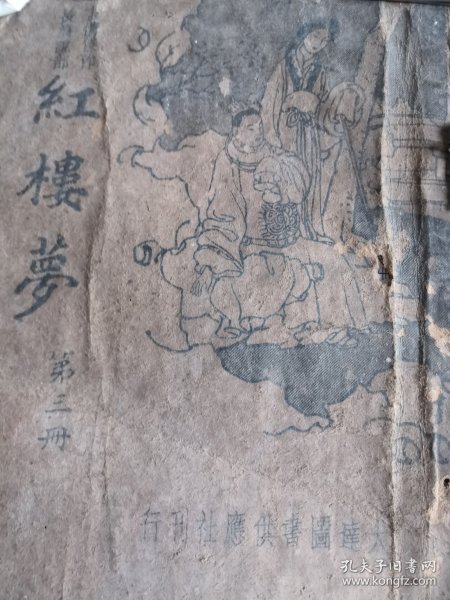 紅樓夢
第三冊
大達圖書供應社刊行
孔夫子旧书网
www.kongfz.com